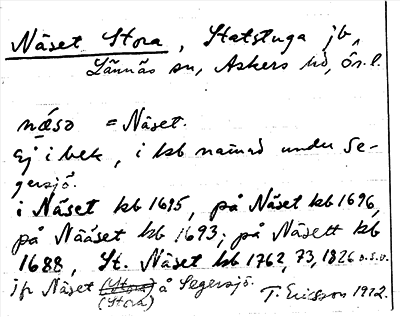 Näset Stora, Statstuga jb,
Lännäs sn, Askers hd, Ör. l.
næsə = Näset.
Ej i bek, i kb nämnd under Se-
gersjö.
i Näset kb 1695, på Näset kb 1696,
på Nääset kb 1693; på Näsett kb
1688, St. Näset kb 1762, 73, 1826 o.s.v.
jfr Näset (Stora) å Segersjö.
(Stora) T. Ericsson 1912.